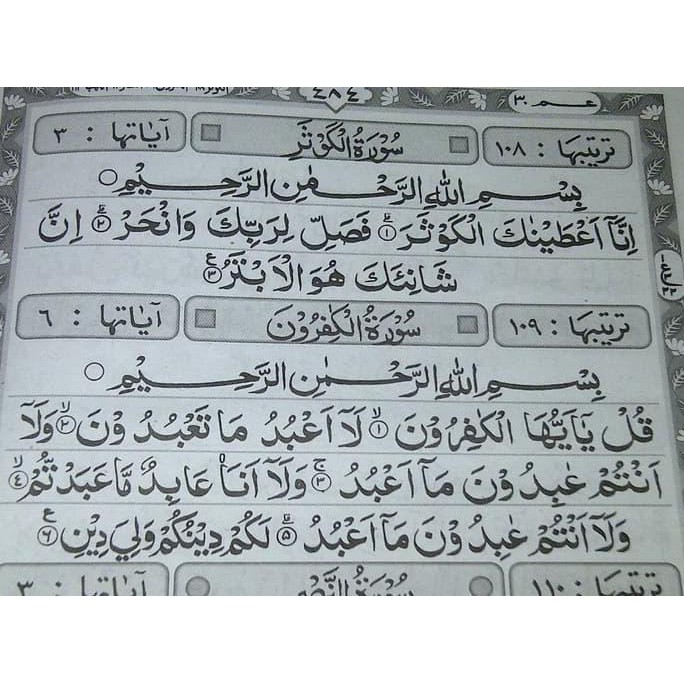 ٤٨٤
عم ٣٠
ترتيبها : ١٠٨ سُوْرَةُ الْكَوْثَرِ آياتها : ٣
بِسْمِ اللهِ الرَّحْمٰنِ الرَّحِيْمِ
اِنَّآ اَعْطَيْنٰكَ الْكَوْثَرَ ١ فَصَلِّ لِرَبِّكَ وَانْحَرْ ٢ اِنَّ
شَانِئَكَ هُوَ الْاَبْتَرُ ٣ ع
ترتيبها : ١٠٩ سُوْرَةُ الْكٰفِرُوْنَ آياتها : ٦
بِسْمِ اللهِ الرَّحْمٰنِ الرَّحِيْمِ
قُلْ يٰٓاَيُّهَا الْكٰفِرُوْنَ ١ لَآ اَعْبُدُ مَا تَعْبُدُوْنَ ٢ وَلَآ
اَنْتُمْ عٰبِدُوْنَ مَآ اَعْبُدُ ٣ وَلَآ اَنَا۠ عَابِدٌ مَّا عَبَدْتُّمْ ٤
وَلَآ اَنْتُمْ عٰبِدُوْنَ مَآ اَعْبُدُ ٥ لَكُمْ دِيْنُكُمْ وَلِيَ دِيْنِ ٦ ع
ترتيبها : ١١٠ سُوْرَةُ النَّصْرِ آياتها : ٣